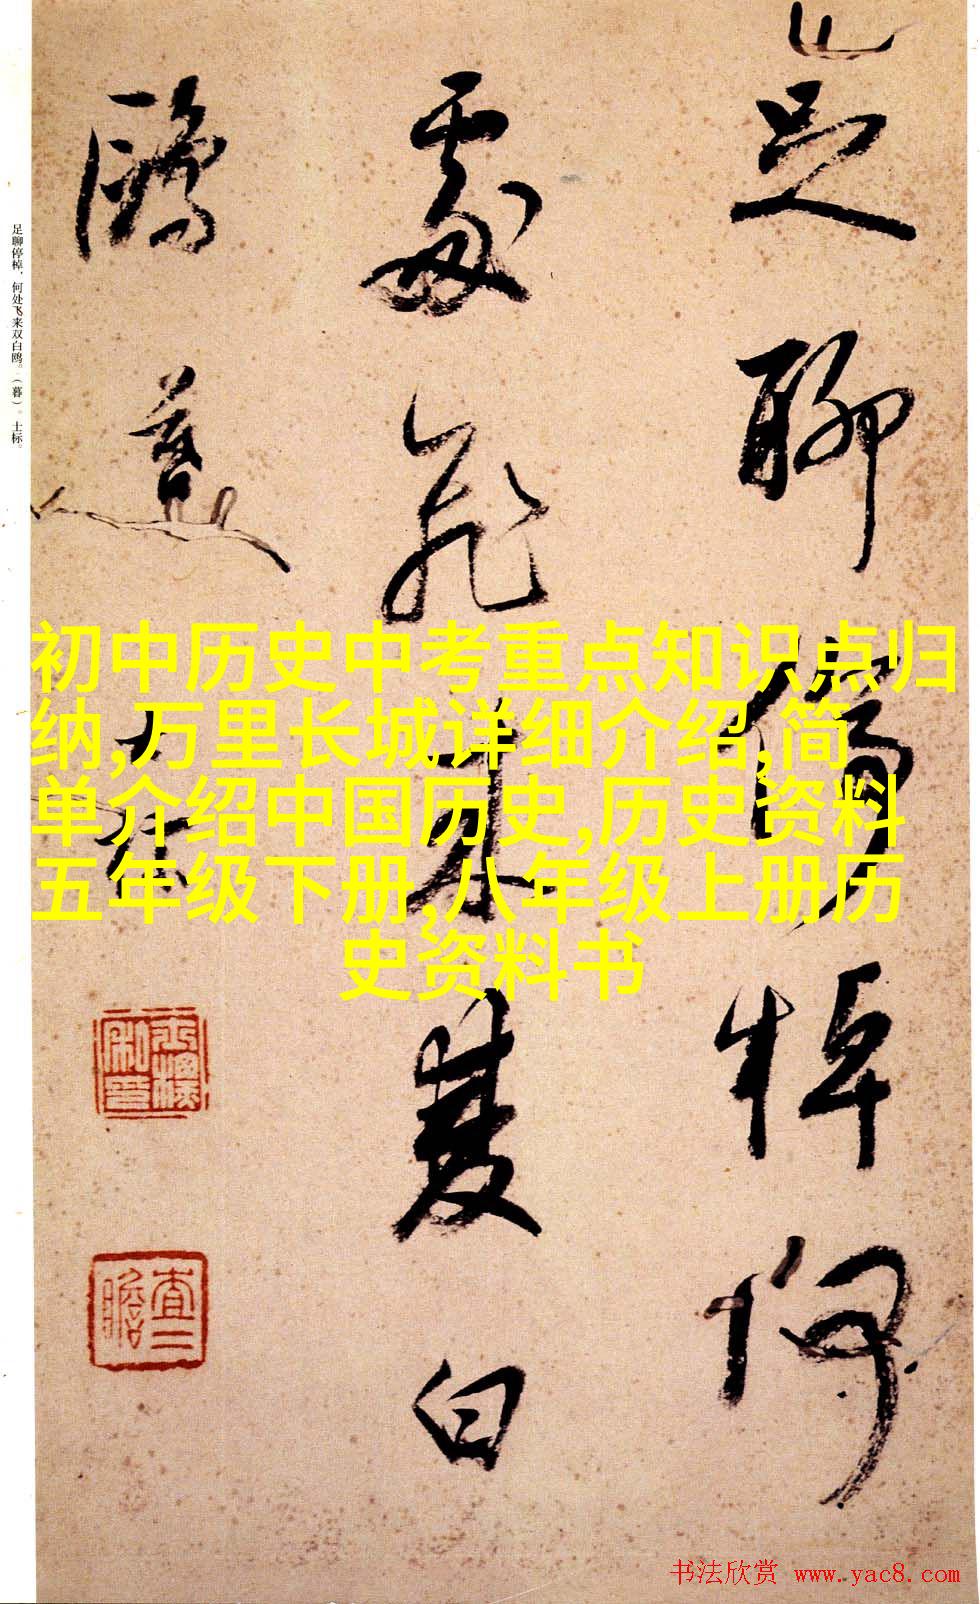 足聊停棹何
處飛來雙白
鷗 暮
士标
足聊停棹，何处飞来双白鸥。（暮）。士标。
初中历史中考重点知识点归
纳,万里长城详细介绍,简
单介绍中国历史,历史资料
五年级下册,八年级上册历
史资料书
查二
瞻
书法欣赏 www.yac8.com